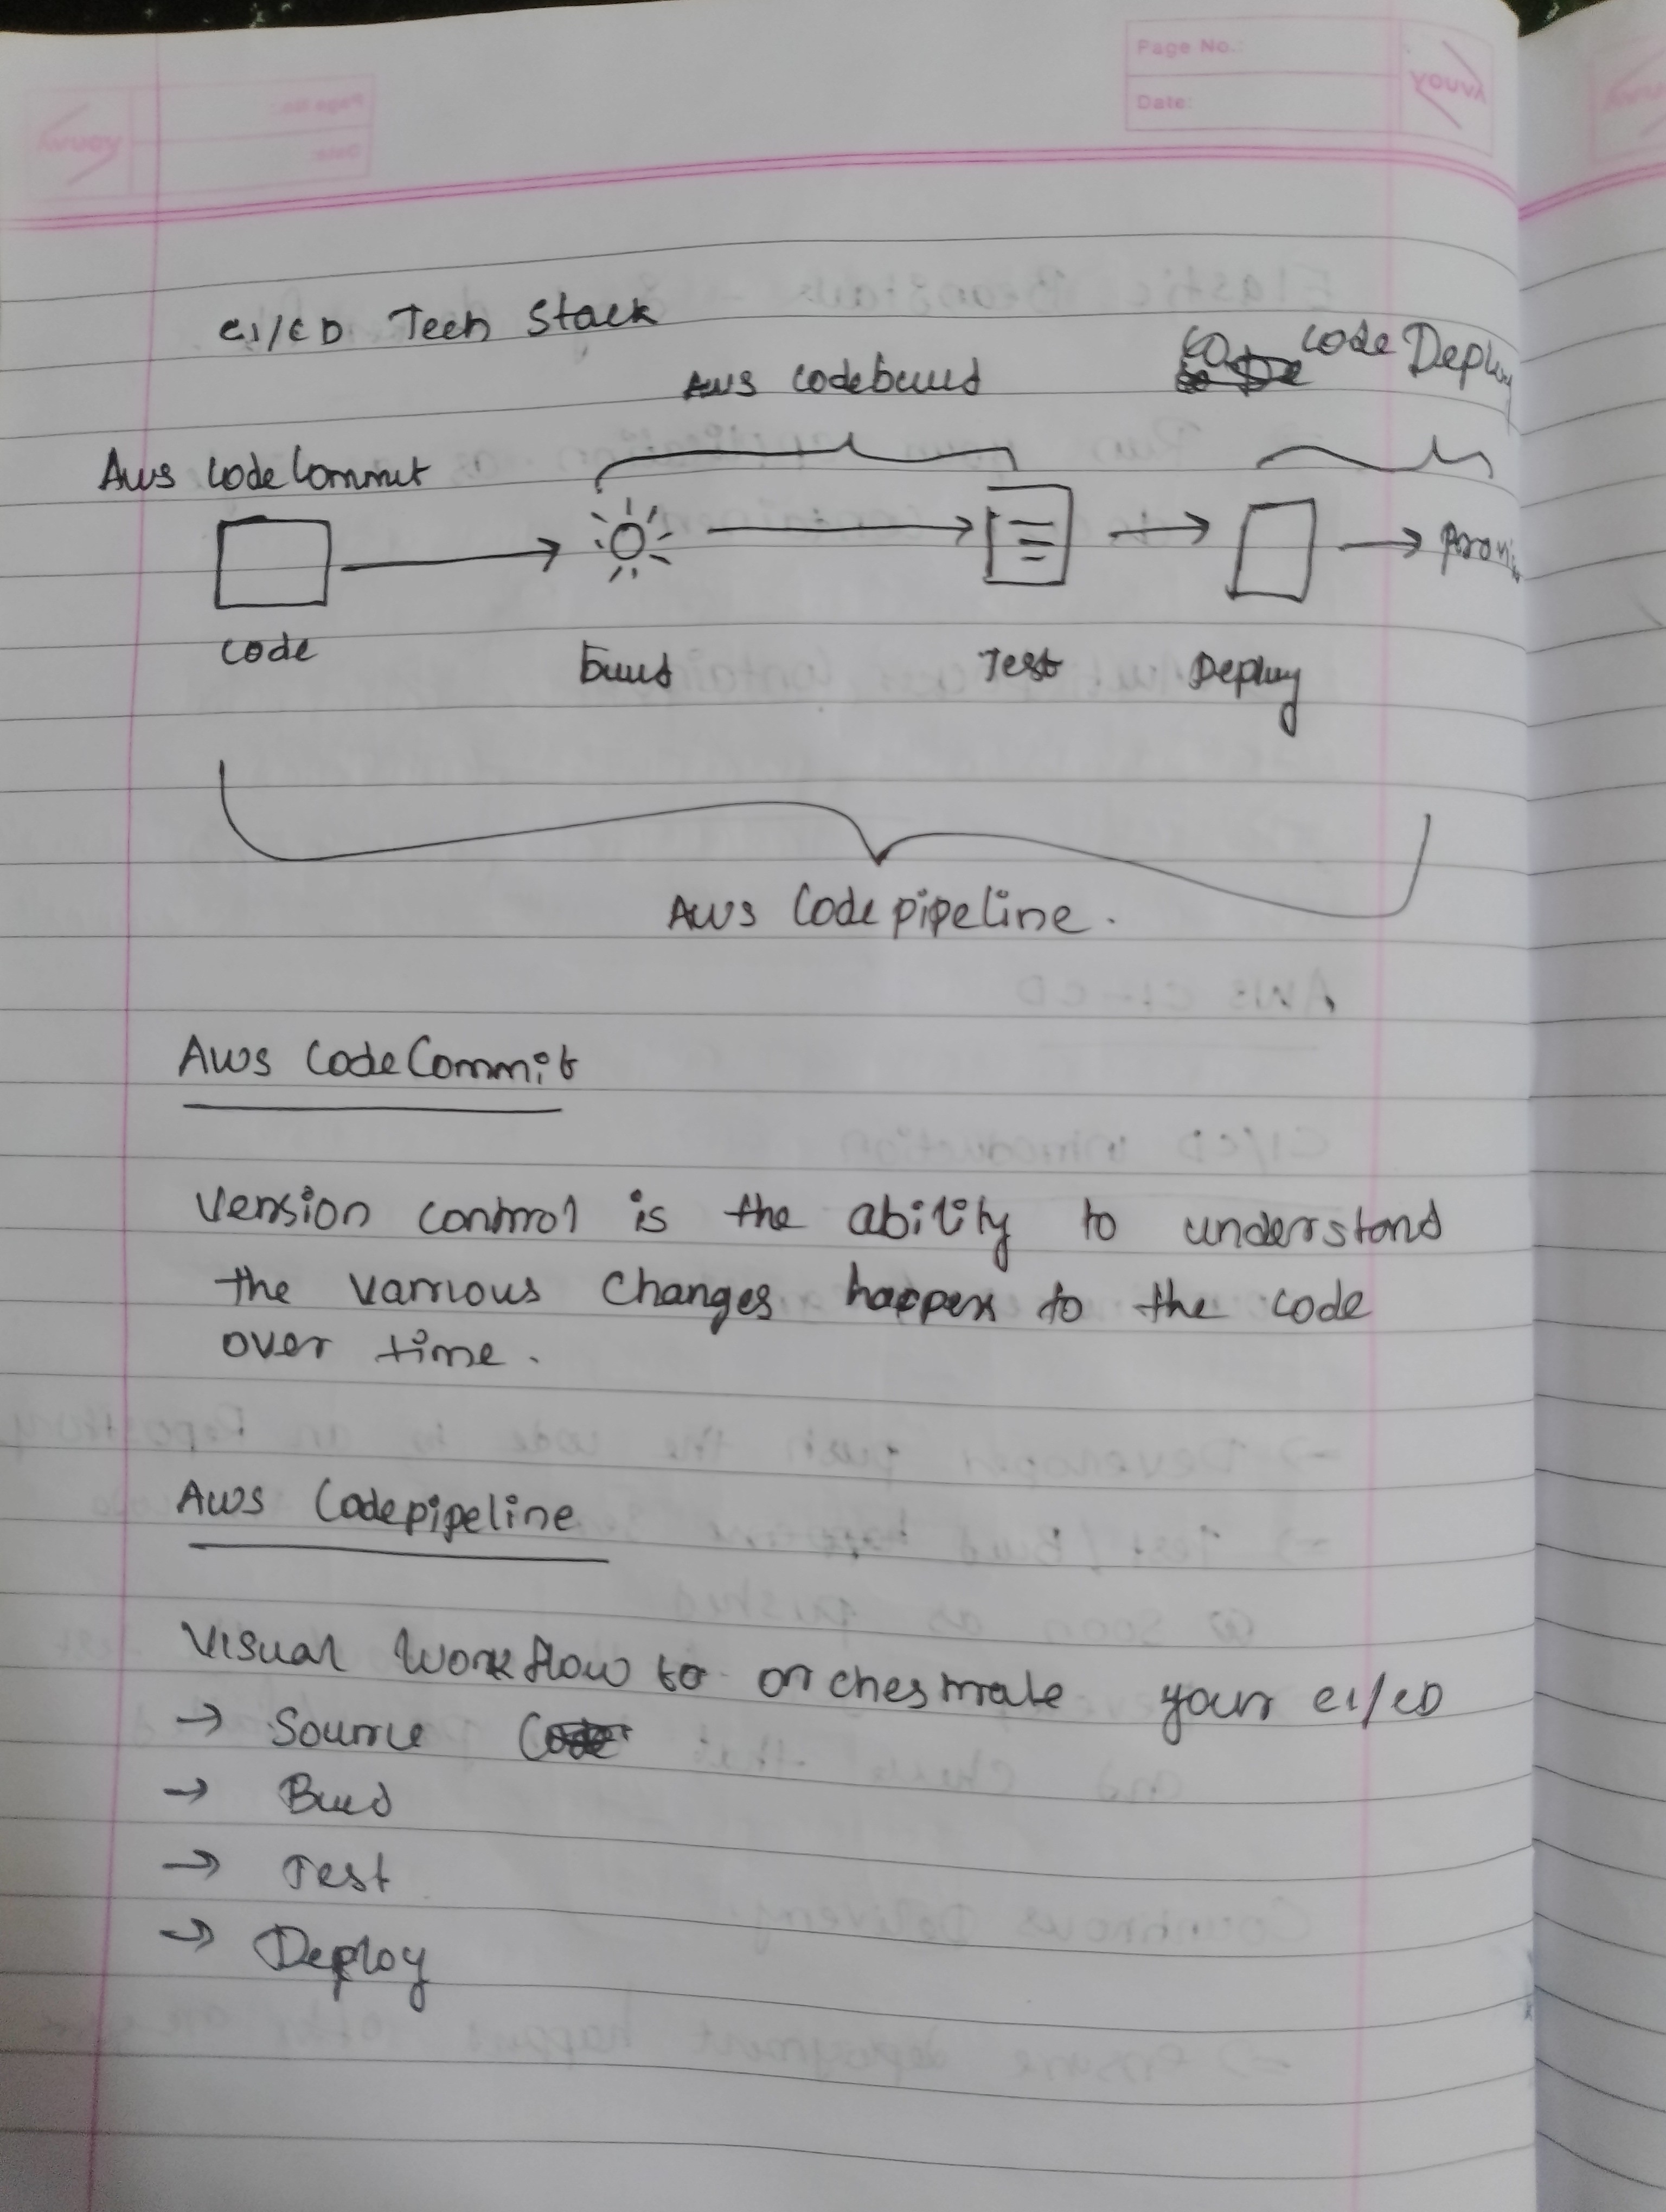 Page No.:
Date:
youva
CI/CD Tech Stack
AWS Codebuild
Code Deploy
AWS CodeCommit
code
build
Test
Deploy
AWS Codepipeline.
AWS CodeCommit
Version control is the ability to understand
the various changes happen to the code
over time.
AWS Codepipeline
Visual Workflow to orchestrate your CI/CD
→ Source
→ Build
→ Test
→ Deploy